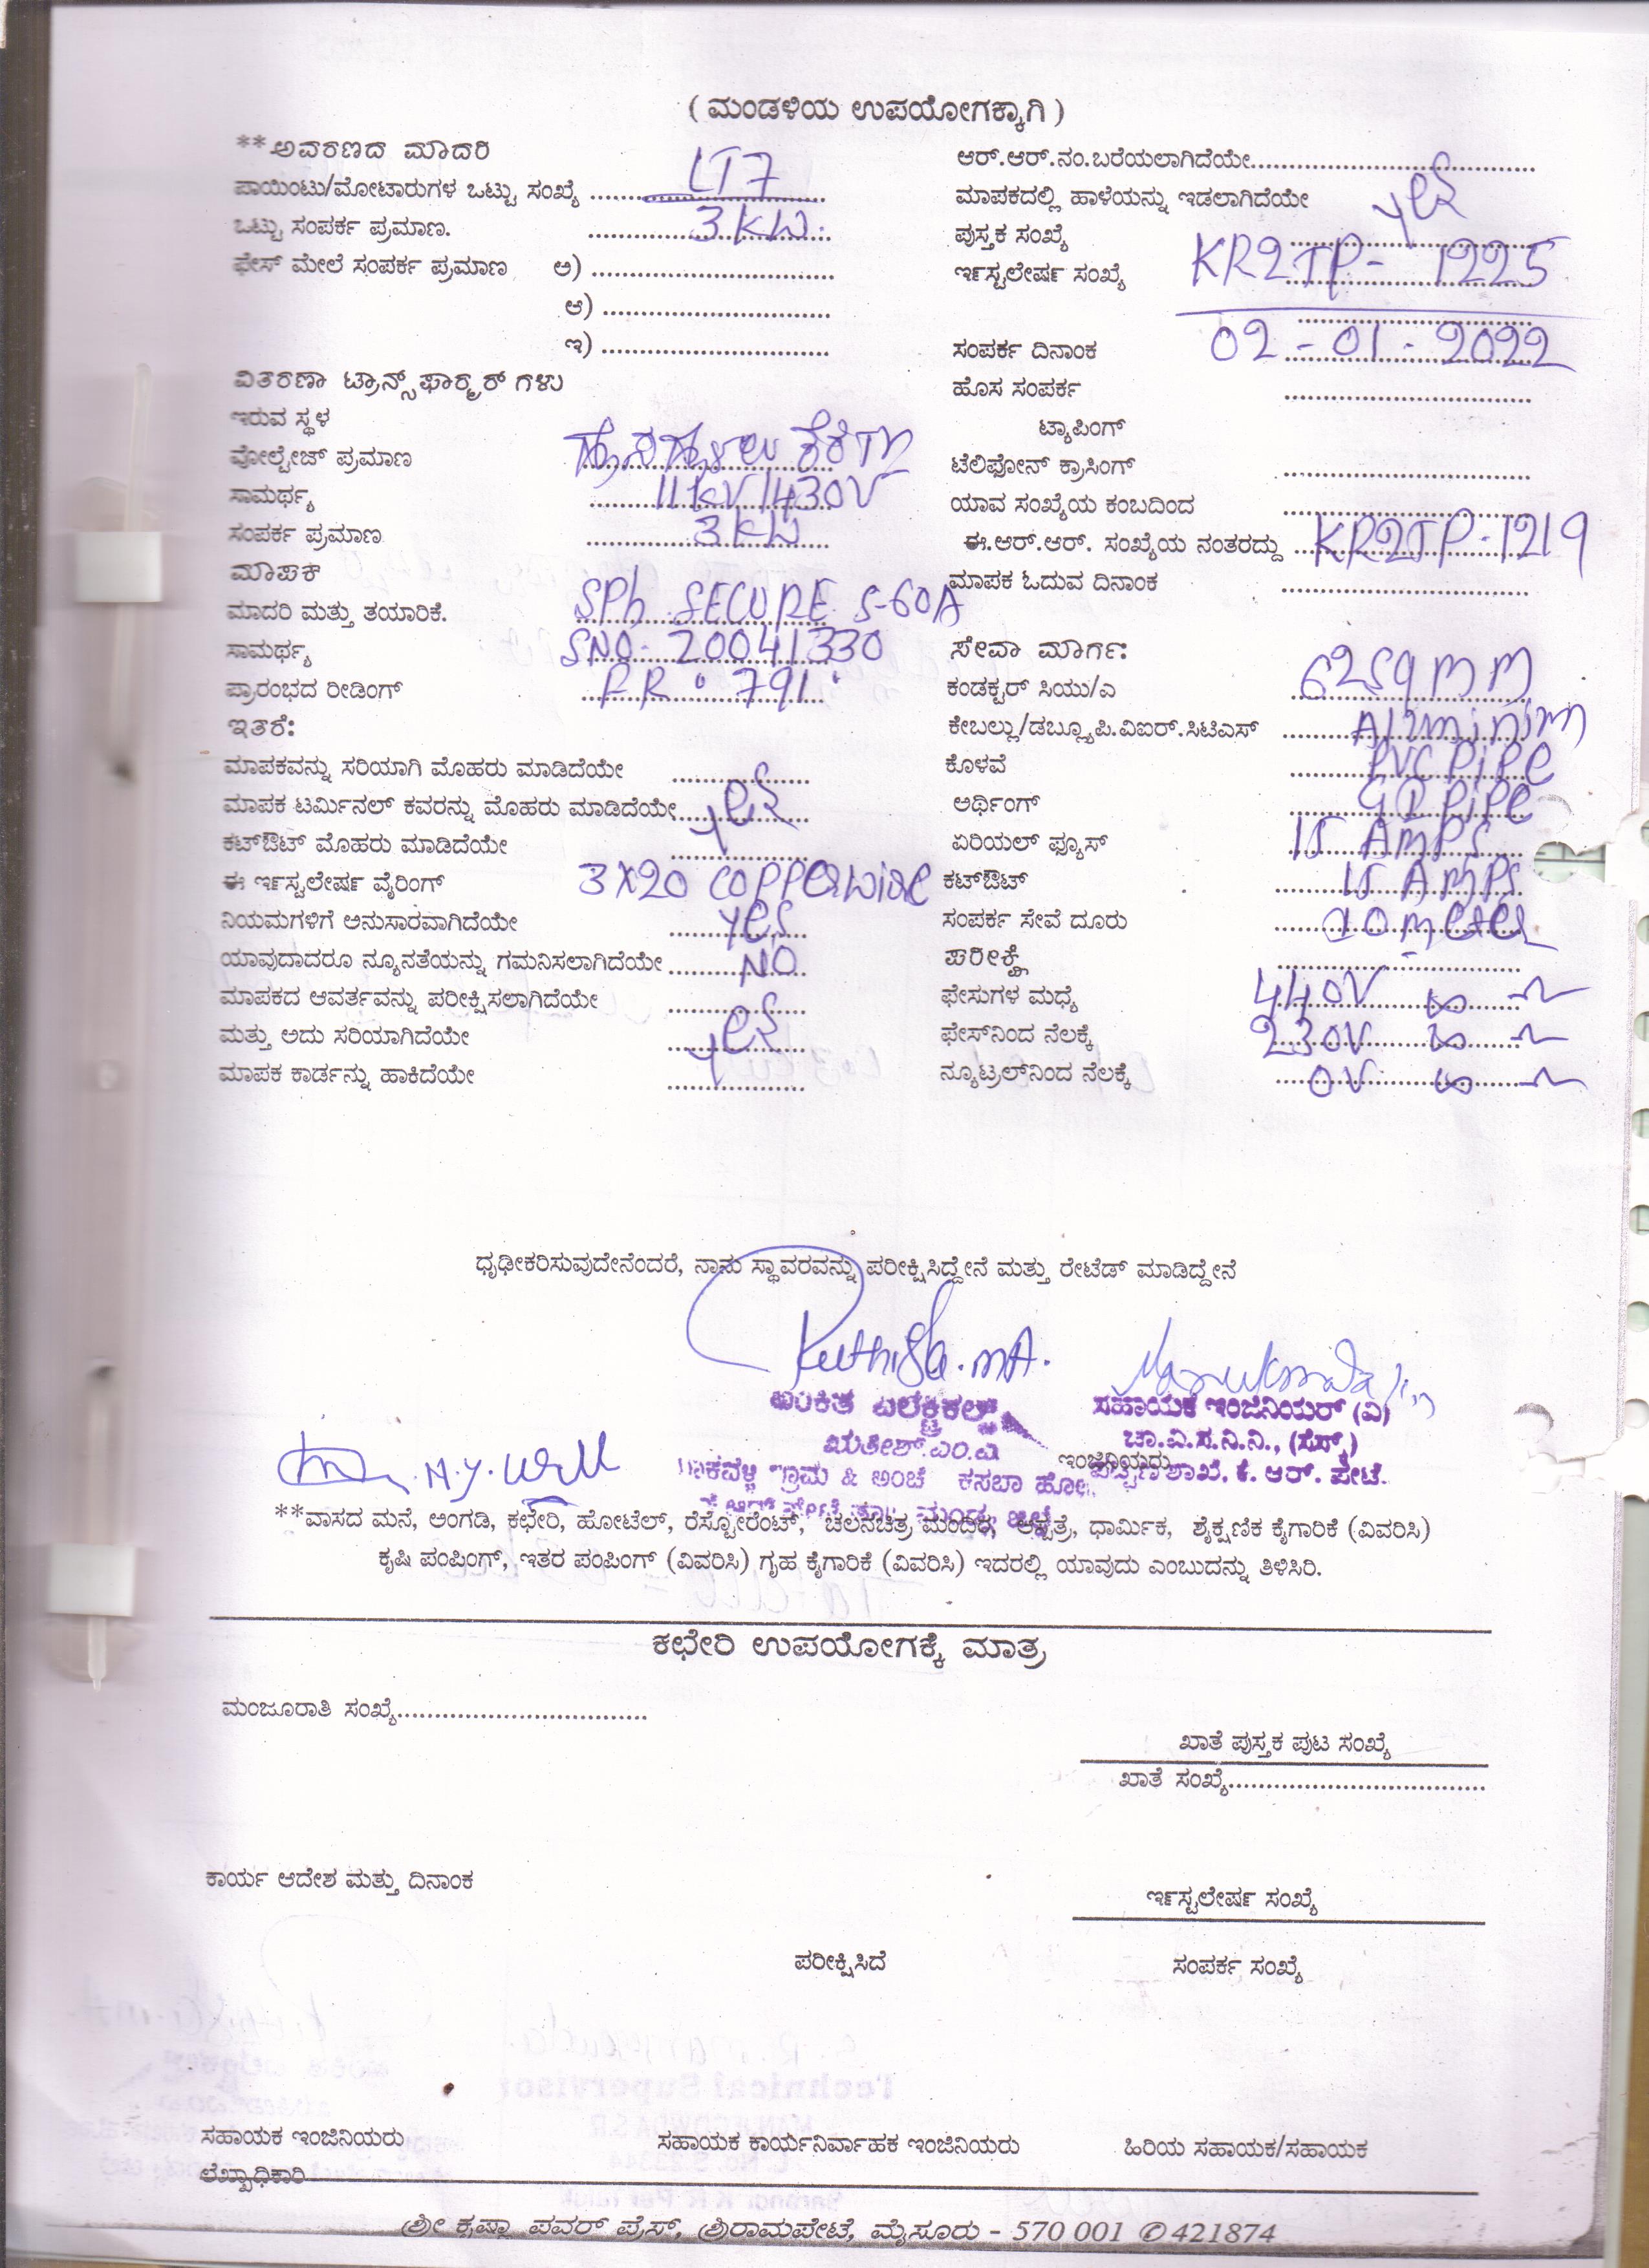 ( ಮಂಡಳಿಯ ಉಪಯೋಗಕ್ಕಾಗಿ )
**ಅವರಣದ ಮಾದರಿ
ಪಾಯಿಂಟು/ಮೋಟಾರುಗಳ ಒಟ್ಟು ಸಂಖ್ಯೆ ........ LT7
ಒಟ್ಟು ಸಂಪರ್ಕ ಪ್ರಮಾಣ. ........ 3 KW.
ಫೇಸ್ ಮೇಲೆ ಸಂಪರ್ಕ ಪ್ರಮಾಣ ಅ) ........
ಆ) ........
ಇ) ........
ವಿತರಣಾ ಟ್ರಾನ್ಸ್‌ಫಾರ್ಮರ್ ಗಳು
ಇರುವ ಸ್ಥಳ
ವೋಲ್ಟೇಜ್ ಪ್ರಮಾಣ
ಸಾಮರ್ಥ್ಯ ........ 11KV/430V
ಸಂಪರ್ಕ ಪ್ರಮಾಣ ........ 3KW
ಮಾಪಕ
ಮಾದರಿ ಮತ್ತು ತಯಾರಿಕೆ. SPh SECURE 5-60A
ಸಾಮರ್ಥ್ಯ SNO- 20041330
ಪ್ರಾರಂಭದ ರೀಡಿಂಗ್ FR : 791.
ಇತರೆ:
ಮಾಪಕವನ್ನು ಸರಿಯಾಗಿ ಮೊಹರು ಮಾಡಿದೆಯೇ ........
ಮಾಪಕ ಟರ್ಮಿನಲ್ ಕವರನ್ನು ಮೊಹರು ಮಾಡಿದೆಯೇ........ yes
ಕಟ್‌ಔಟ್ ಮೊಹರು ಮಾಡಿದೆಯೇ ........
ಈ ಇನ್‌ಸ್ಟಲೇಷನ್ ವೈರಿಂಗ್ 3X20 COPPER wire
ನಿಯಮಗಳಿಗೆ ಅನುಸಾರವಾಗಿದೆಯೇ ........ yes
ಯಾವುದಾದರೂ ನ್ಯೂನತೆಯನ್ನು ಗಮನಿಸಲಾಗಿದೆಯೇ........ NO
ಮಾಪಕದ ಆವರ್ತವನ್ನು ಪರೀಕ್ಷಿಸಲಾಗಿದೆಯೇ ........
ಮತ್ತು ಅದು ಸರಿಯಾಗಿದೆಯೇ ........ yes
ಮಾಪಕ ಕಾರ್ಡನ್ನು ಹಾಕಿದೆಯೇ ........
ಆರ್.ಆರ್.ನಂ.ಬರೆಯಲಾಗಿದೆಯೇ........
ಮಾಪಕದಲ್ಲಿ ಹಾಳೆಯನ್ನು ಇಡಲಾಗಿದೆಯೇ yes
ಪುಸ್ತಕ ಸಂಖ್ಯೆ ........
ಇನ್‌ಸ್ಟಲೇಷನ್ ಸಂಖ್ಯೆ KR2TP- 1225
ಸಂಪರ್ಕ ದಿನಾಂಕ 02-01-2022
ಹೊಸ ಸಂಪರ್ಕ ........
ಟ್ಯಾಪಿಂಗ್
ಟೆಲಿಫೋನ್ ಕ್ರಾಸಿಂಗ್ ........
ಯಾವ ಸಂಖ್ಯೆಯ ಕಂಬದಿಂದ ........
ಈ.ಆರ್.ಆರ್. ಸಂಖ್ಯೆಯ ನಂತರದ್ದು KR2TP-1219
ಮಾಪಕ ಓದುವ ದಿನಾಂಕ ........
ಸೇವಾ ಮಾರ್ಗ:
ಕಂಡಕ್ಟರ್ ಸಿಯು/ಎ 625qmm
ಕೇಬಲ್ಲು/ಡಬ್ಲ್ಯೂಪಿ.ವಿಐರ್.ಸಿಟಿಎಸ್ ........ Aluminim
ಕೊಳವೆ ........ PVC PiPe
ಅರ್ಥಿಂಗ್ ........ GI PiPe
ಏರಿಯಲ್ ಫ್ಯೂಸ್ 15 AMPS
ಕಟ್‌ಔಟ್ 15 AMPS
ಸಂಪರ್ಕ ಸೇವೆ ದೂರು ........
ಪರೀಕ್ಷೆ ........
ಫೇಸುಗಳ ಮಧ್ಯೆ 440V
ಫೇಸ್‌ನಿಂದ ನೆಲಕ್ಕೆ 230V
ನ್ಯೂಟ್ರಲ್‌ನಿಂದ ನೆಲಕ್ಕೆ 0V
ಧೃಢೀಕರಿಸುವುದೇನೆಂದರೆ, ನಾನು ಸ್ಥಾವರವನ್ನು ಪರೀಕ್ಷಿಸಿದ್ದೇನೆ ಮತ್ತು ರೇಟೆಡ್ ಮಾಡಿದ್ದೇನೆ
ಅಂಕಿತ ಎಲೆಕ್ಟ್ರಿಕಲ್ಸ್
ಋತೀಶ್.ಎಂ.ಎ
ಗ್ರಾಮ & ಅಂಚೆ ಕಸಬಾ ಹೋ.
ಸಹಾಯಕ ಇಂಜಿನಿಯರ್ (ವಿ)
ಚಾ.ವಿ.ಸ.ನಿ.ನಿ., (ಸೆಸ್ಕ್)
ಇಂಜಿನಿಯರು
ಪಟ್ಟಣ ಶಾಖೆ, ಕೆ. ಆರ್. ಪೇಟೆ.
**ವಾಸದ ಮನೆ, ಅಂಗಡಿ, ಕಛೇರಿ, ಹೋಟೆಲ್, ರೆಸ್ಟೋರೆಂಟ್, ಚಲನಚಿತ್ರ ಮಂದಿರ, ಆಸ್ಪತ್ರೆ, ಧಾರ್ಮಿಕ, ಶೈಕ್ಷಣಿಕ ಕೈಗಾರಿಕೆ (ವಿವರಿಸಿ)
ಕೃಷಿ ಪಂಪಿಂಗ್, ಇತರ ಪಂಪಿಂಗ್ (ವಿವರಿಸಿ) ಗೃಹ ಕೈಗಾರಿಕೆ (ವಿವರಿಸಿ) ಇದರಲ್ಲಿ ಯಾವುದು ಎಂಬುದನ್ನು ತಿಳಿಸಿರಿ.
ಕಛೇರಿ ಉಪಯೋಗಕ್ಕೆ ಮಾತ್ರ
ಮಂಜೂರಾತಿ ಸಂಖ್ಯೆ........
ಖಾತೆ ಪುಸ್ತಕ ಪುಟ ಸಂಖ್ಯೆ
ಖಾತೆ ಸಂಖ್ಯೆ........
ಕಾರ್ಯ ಆದೇಶ ಮತ್ತು ದಿನಾಂಕ
ಇನ್‌ಸ್ಟಲೇಷನ್ ಸಂಖ್ಯೆ
ಪರೀಕ್ಷಿಸಿದೆ ಸಂಪರ್ಕ ಸಂಖ್ಯೆ
ಸಹಾಯಕ ಇಂಜಿನಿಯರು ಸಹಾಯಕ ಕಾರ್ಯನಿರ್ವಾಹಕ ಇಂಜಿನಿಯರು ಹಿರಿಯ ಸಹಾಯಕ/ಸಹಾಯಕ
ಲೆಖ್ಖಾಧಿಕಾರಿ
ಶ್ರೀ ಕೃಷ್ಣಾ ಪವರ್ ಪ್ರೆಸ್, ಶ್ರೀರಾಮಪೇಟೆ, ಮೈಸೂರು - 570 001 ✆ 421874